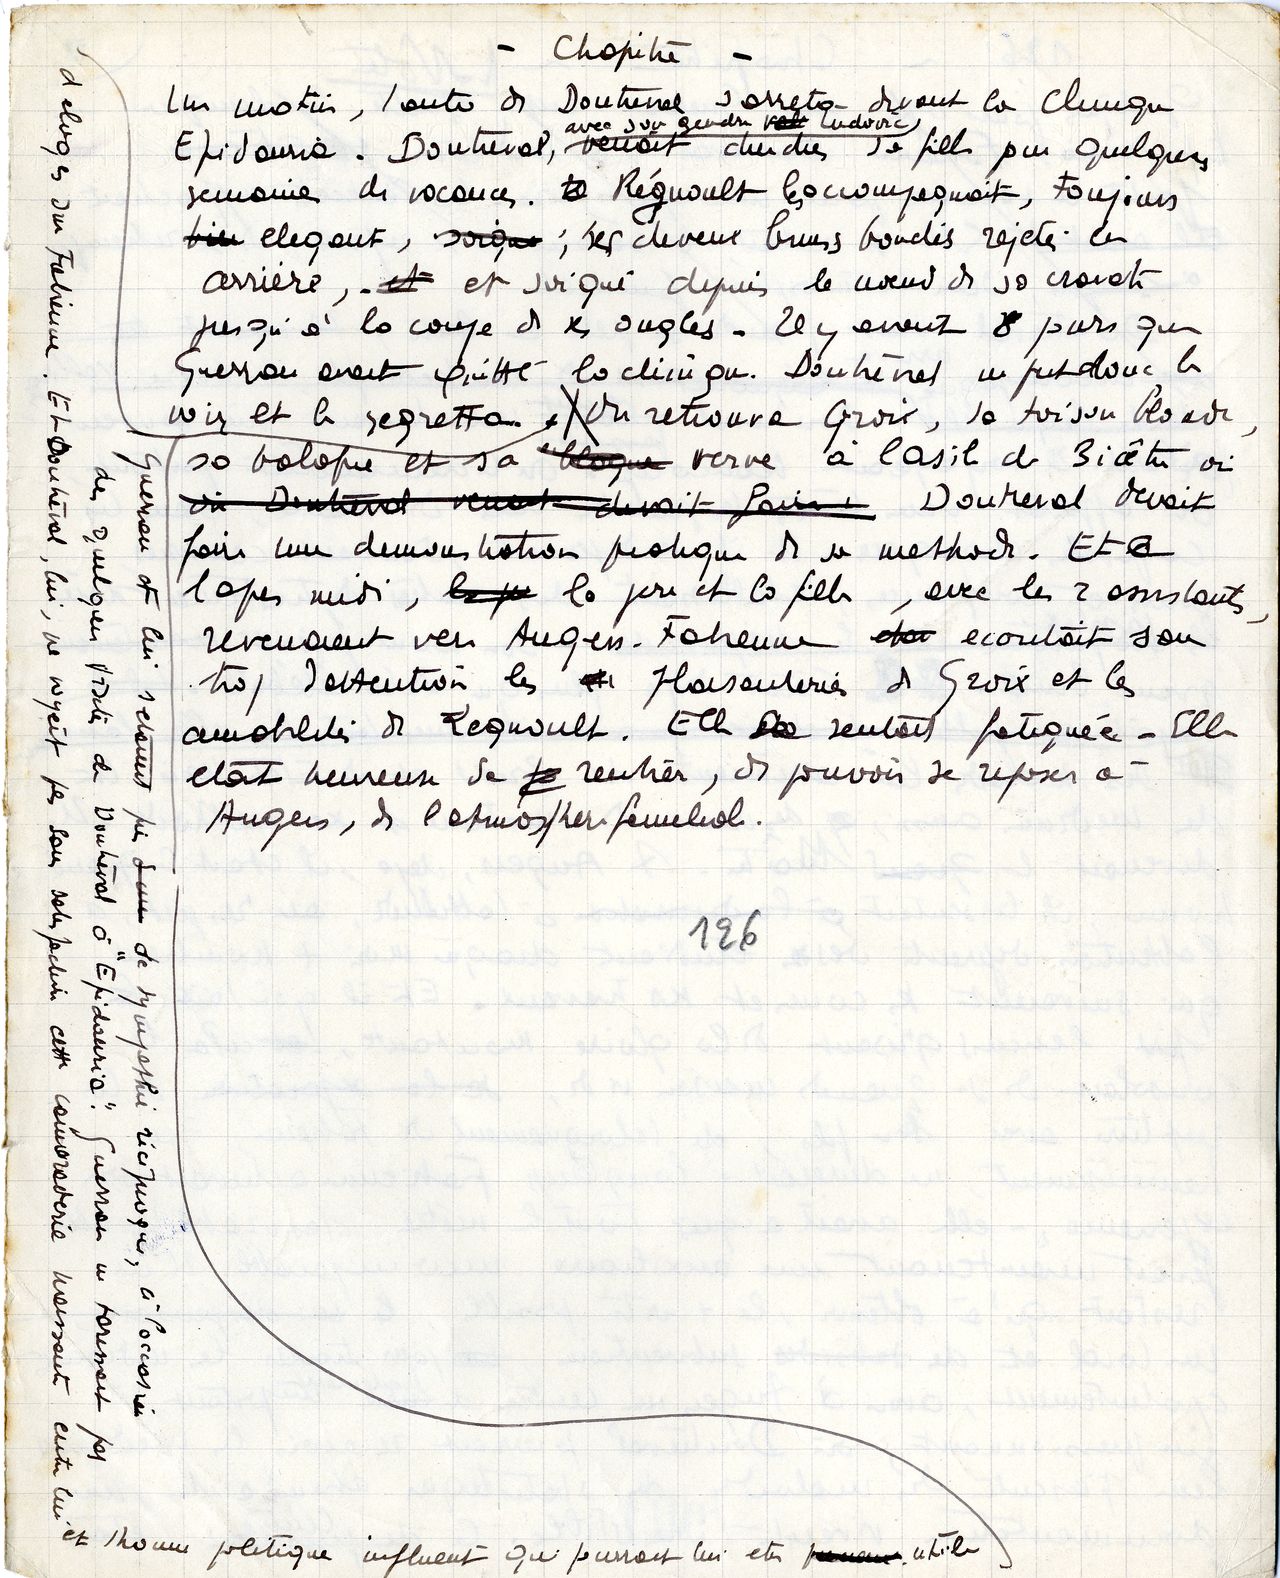 - Chapitre -
Un matin, l'auto de Doutreval s'arreta devant la Clinique
avec son gendre Ludovic,
Epidauria. Doutreval, venait chercher sa fille pour quelques
semaines de vacances. Régnoult les accompagnait, toujours
bien elegant, soigné, ses cheveux bruns bouclés rejetés en
arrière, et et soigné depuis le noeud de sa cravate
jusqu'à la coupe de ses ongles. Il y avait 8 jours que
Guerran avait quitté la clinique. Doutreval ne put donc le
voir et le regretta. On retrouva Groix, sa toison blonde,
sa balafre et sa blague verve à l'asile de Bicêtre où
où Doutreval venait devait faire Doutreval devait
faire une demonstration pratique de sa methode. Et
l'apres midi, le père et la fille, avec les 2 assistants,
revenaient vers Angers. Fabienne ecoutait sans
trop d'attention les plaisanteries de Groix et les
amabilités de Regnoult. Elle se sentait fatiguée - Elle
etait heureuse de rentrer, de pouvoir se reposer à
Angers, de l'atmosphere familiale.
126
Guerran et lui s'etaient pris de sympathie réciproque, à l'occasion
des quelques visites de Doutreval à "Epidauria". Guerran ne tarissait pas
d'eloges sur Fabienne. Et Doutreval, lui, ne voyait pas sans satisfaction cette camaraderie naissante entre lui
et l'homme politique influent qui pourrait lui etre utile